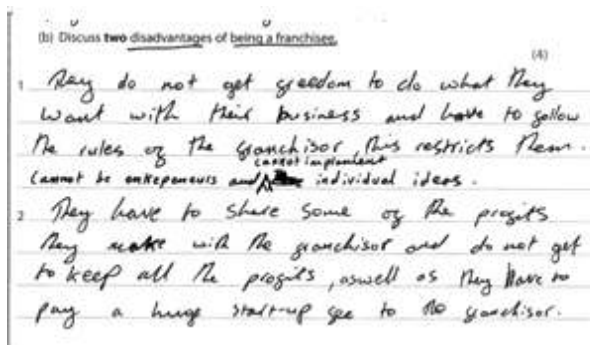 (b) Discuss two disadvantages of being a franchisee.
(4)
1 They do not get freedom to do what they
want with their business and have to follow
the rules of the franchisor, this restricts them.
cannot implement
Cannot be entrepeneurs and individual ideas.
2 They have to share some of the profits
they make with the franchisor and do not get
to keep all the profits, aswell as they have to
pay a huge start-up fee to the franchisor.